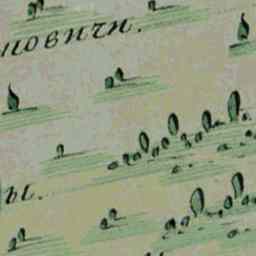 новичи.
ы.